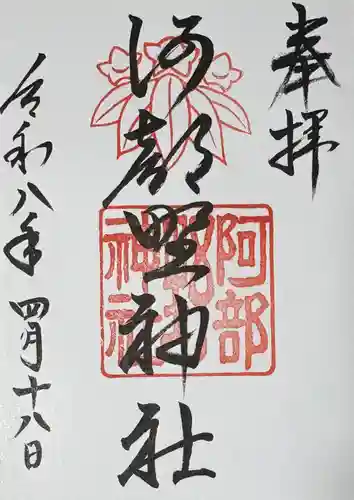 奉拝
阿部野神社
令和八年 四月十八日
阿部
神社